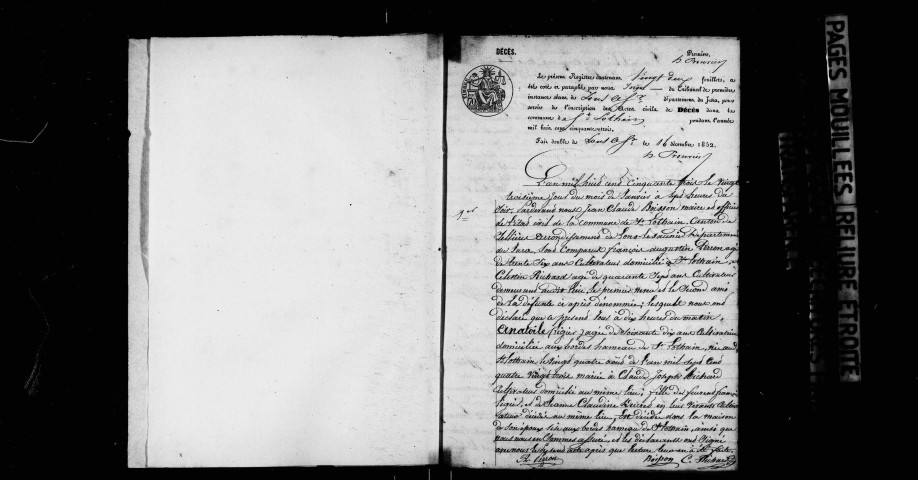 DÉCÈS.
Première,
Le présent Registre contenant vingt deux feuillets, a
été coté et paraphé par nous du Tribunal de première
instance séant de Lons le S.er département du Jura, pour
servir de l'inscription des Actes civils de DÉCÈS dans la
commune de St Lothain pendant l'année
mil huit cent cinquante-trois.
Fait double à Lons le S.er le 16 décembre 1852
L'an mil huit cent cinquante trois le vingt
troisième jour du mois de Janvier à sept heures du
soir, Pardevant nous Jean Claude Buisson maire et officier
de l'état civil de la commune de St Lothain, Canton de
Sellières arrondissement de Lons-le-Saunier département
du Jura, sont comparus françois augustin age
de trente six ans Cultivateur domicilié à St Lothain et
Celestin Richard age de quarante sept ans Cultivateur
demeurant audit lieu, le premier neveu et le Second ami
de la défunte ci après dénommée; lesquels nous ont
déclaré que ce présent jour à dix heures du matin,
Anatoile agée de soixante dix ans Cultivatrice
domiciliée aux bordes hameau de St Lothain, née audit
St Lothain le vingt quatre août de l'an mil sept Cent
quatre vingt trois mariée à Claude Joseph Richard
Cultivateur domicilié au même lieu; fille des feu françois
et de Jeanne Claudine en leur vivant cultivateurs
décédés au même lieu, Est décédée dans la maison
de son époux sise aux bordes hameau de St Lothain, ainsi que
nous nous en sommes assuré, et les déclarants ont signé
avec nous le présent acte après que lecture leur en a été faite.
Buisson C. Richard
PAGES MOUILLEES RELIURE ETROITE